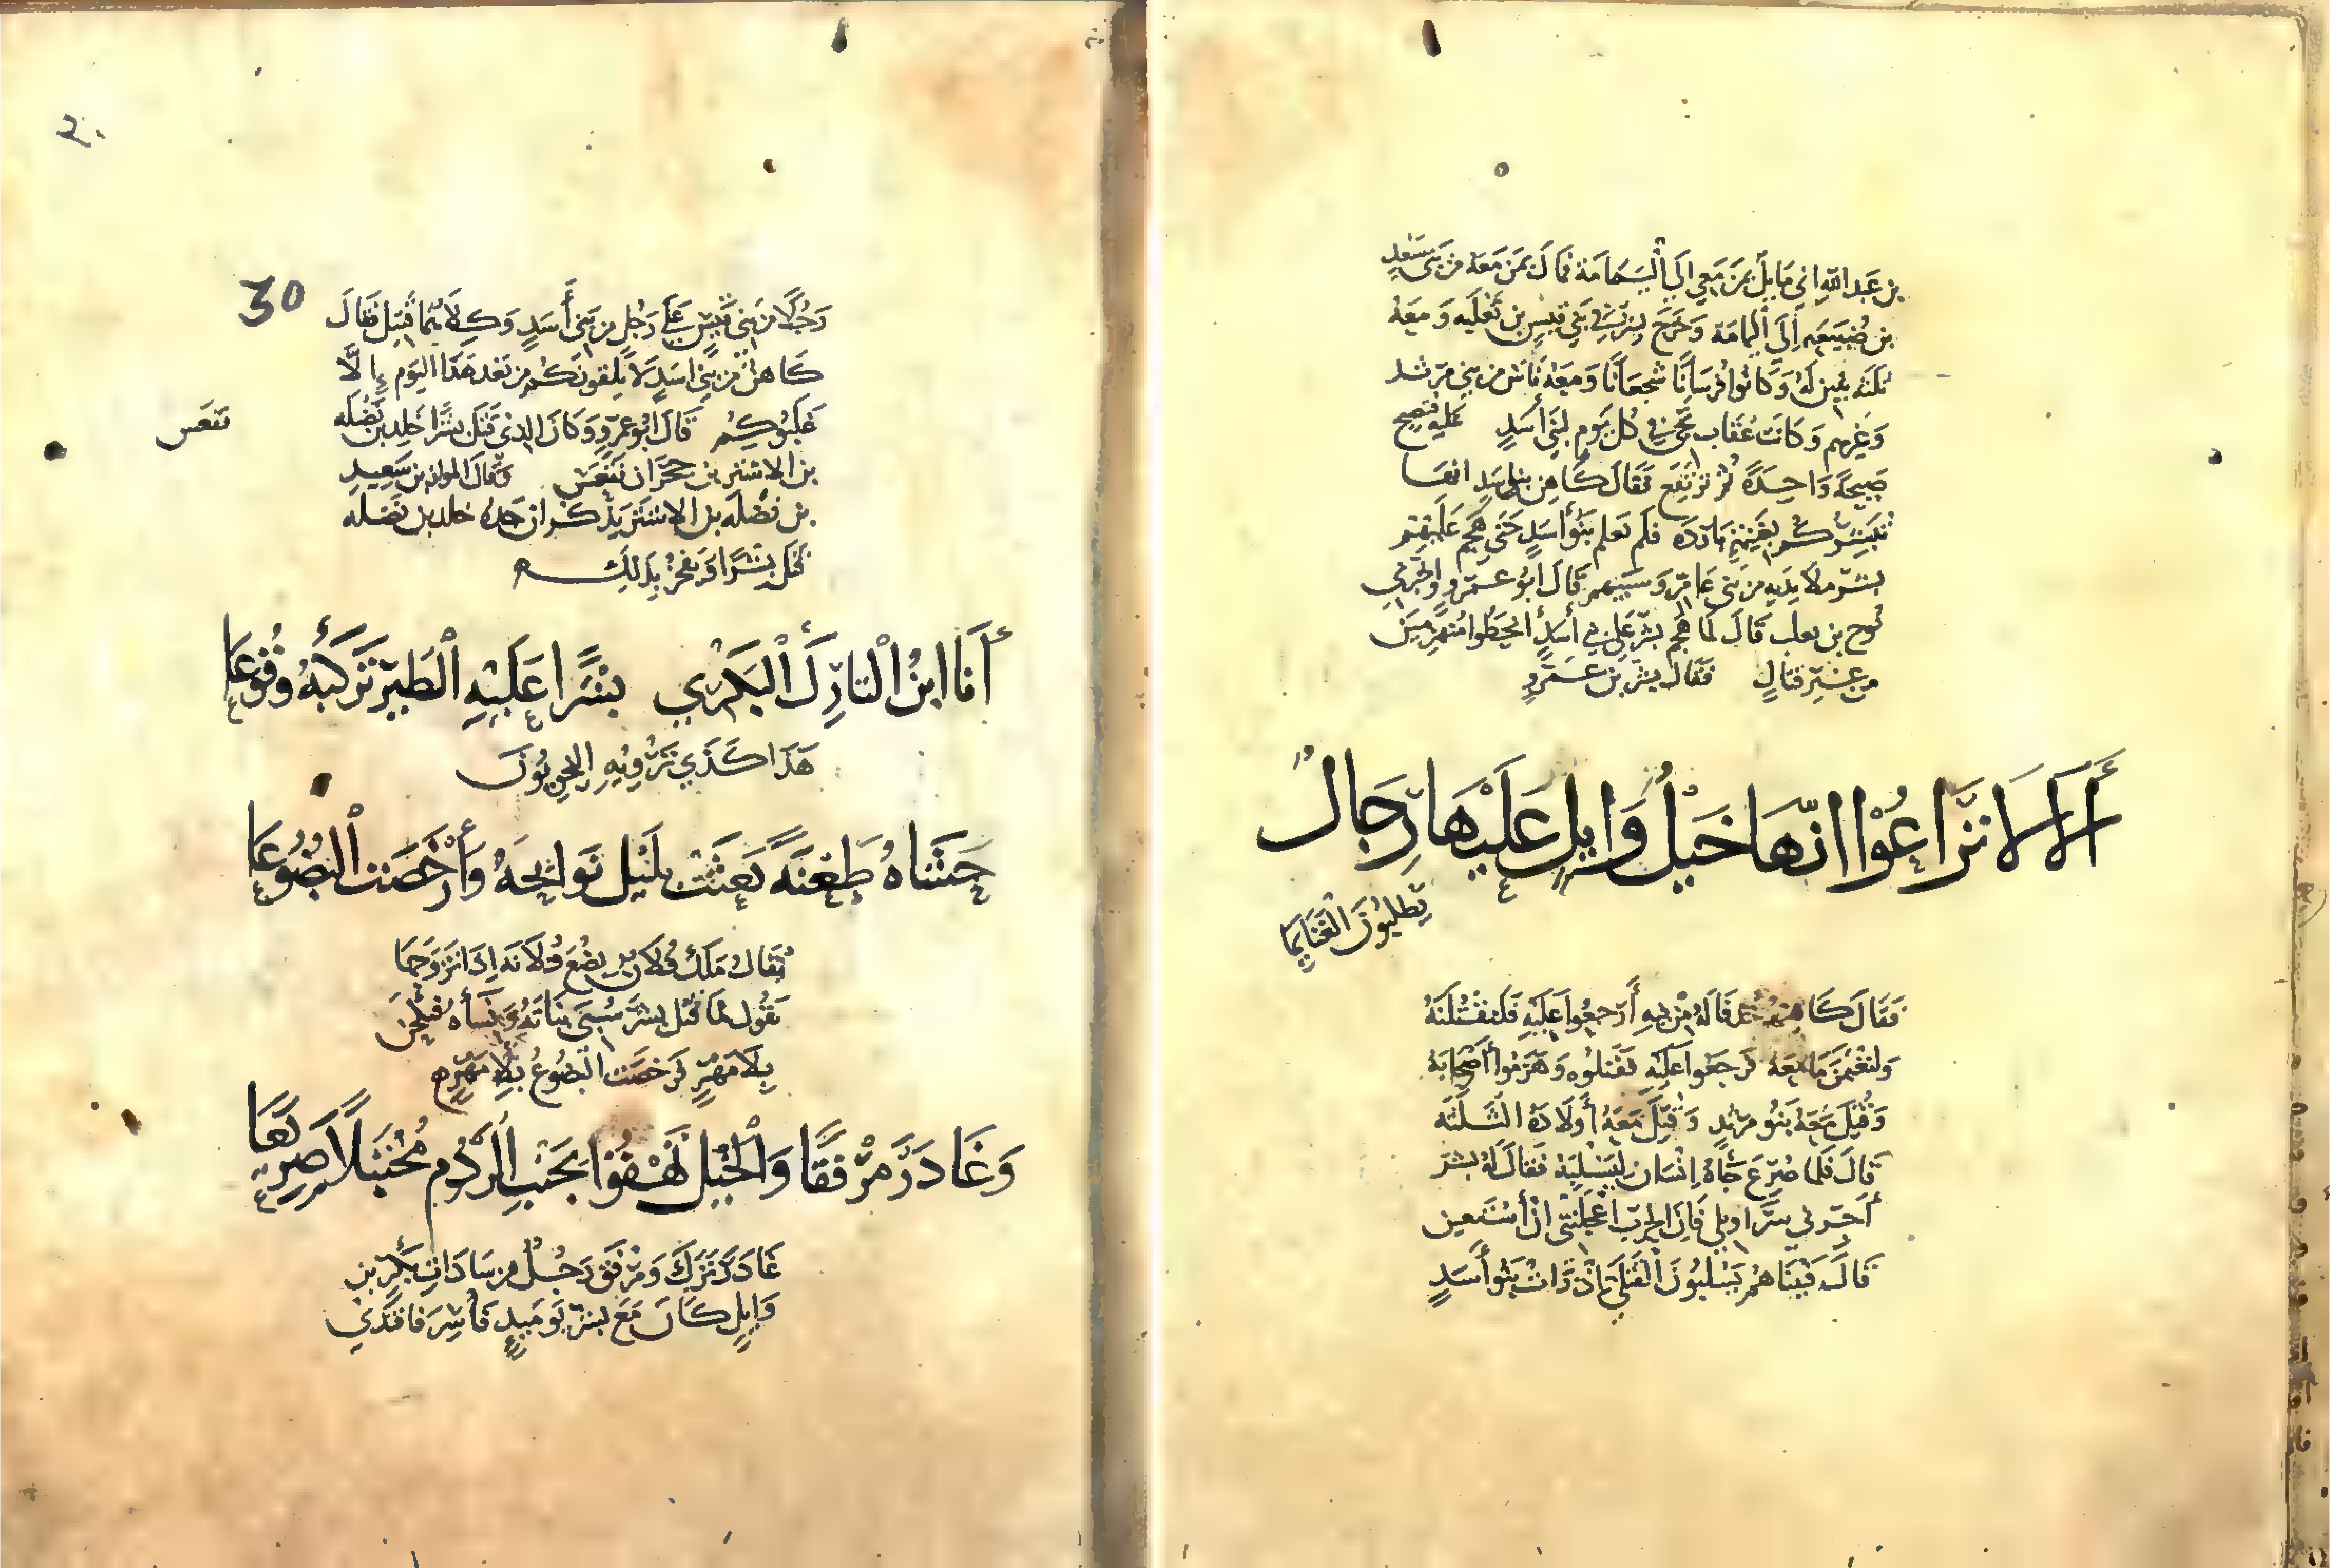 بن عبد الله اني مايل بمن معي الى اليمامة فمال بمن معه من بني سعد
بن ضبيعه الى اليمامة وخرج بشر في بني قيس بن ثعلبه ومعه
ثلثة بنين له وكانوا فرسانا شجعانا ومعه ناس من بني مرثد
وغيرهم وكانت عقاب تجي في كل يوم لبني أسد عليه فتصيح
صيحة واحدة ثم ترتفع فقال كاهن بني اسد انها
تبشركم بغنيمة باردة فلم تعلم بنوا أسد حتى هجم عليهم
بشر من بني عامر وسبيهم قال ابو عمرو واخبرني
نوح بن ثعلب قال لما هجم بشر على بني أسد انحطوا منهزمين
من غير قتال فقال بشر بن عمرو
ألا لا تراعوا انها خيل وايل عليها رجال
يطلبون الغنايما
فقال كاهنهم قاله من فيه أرجعوا عليه فلنقتلنه
ولنغنمن ما معه فرجعوا عليه فقتلوه وهزموا أصحابه
وقتل معه بنو مرثد وقتل معه أولاده الثلثه
قال فلما صرع جاه انسان ليسلبه فقال له بشر
أجر لي سراويلي فان الحرب اعجلتني ان أستعين
قال فبينا هم يسلبون القتلى اذ رات بنو أسد
٣٠
30
رجلا من بني قيس على رجل من بني أسد وكلاهما قتيل فقال
كاهن من بني اسد لا يلقونكم من بعد هذا اليوم الا
غلبوكم قال ابو عمرو وكان الذي قتل بشرا خلد بن نضله
بن الاشتر بن حجوان بن فقعس وقال المرار بن سعيد
فقعس
بن نضله بن الاشتر يذكر ان جده خلد بن نضله
قتل بشرا ويفخر بذلك
أنا ابن التارك البكري بشرا عليه الطير تركبه وقوعا
هذا كذي ترويه النحويون
حشاه طعنة بعثت بليل نوائحه وأرخصت البضوعا
يقال ملك فلان بضع فلانه اذا تزوجها
يقول لما قتل بشر سبى بناته ونساه فنكحن
بلا مهر فرخصت البضوع بلا مهر
وغادر مرفقا والخيل تهفوا بجنب الردم مختبلا صريعا
غادر ترك ومرفق رجل من سادات بكر بن
وايل كان مع بشر يوميذ فأسر فافتدي